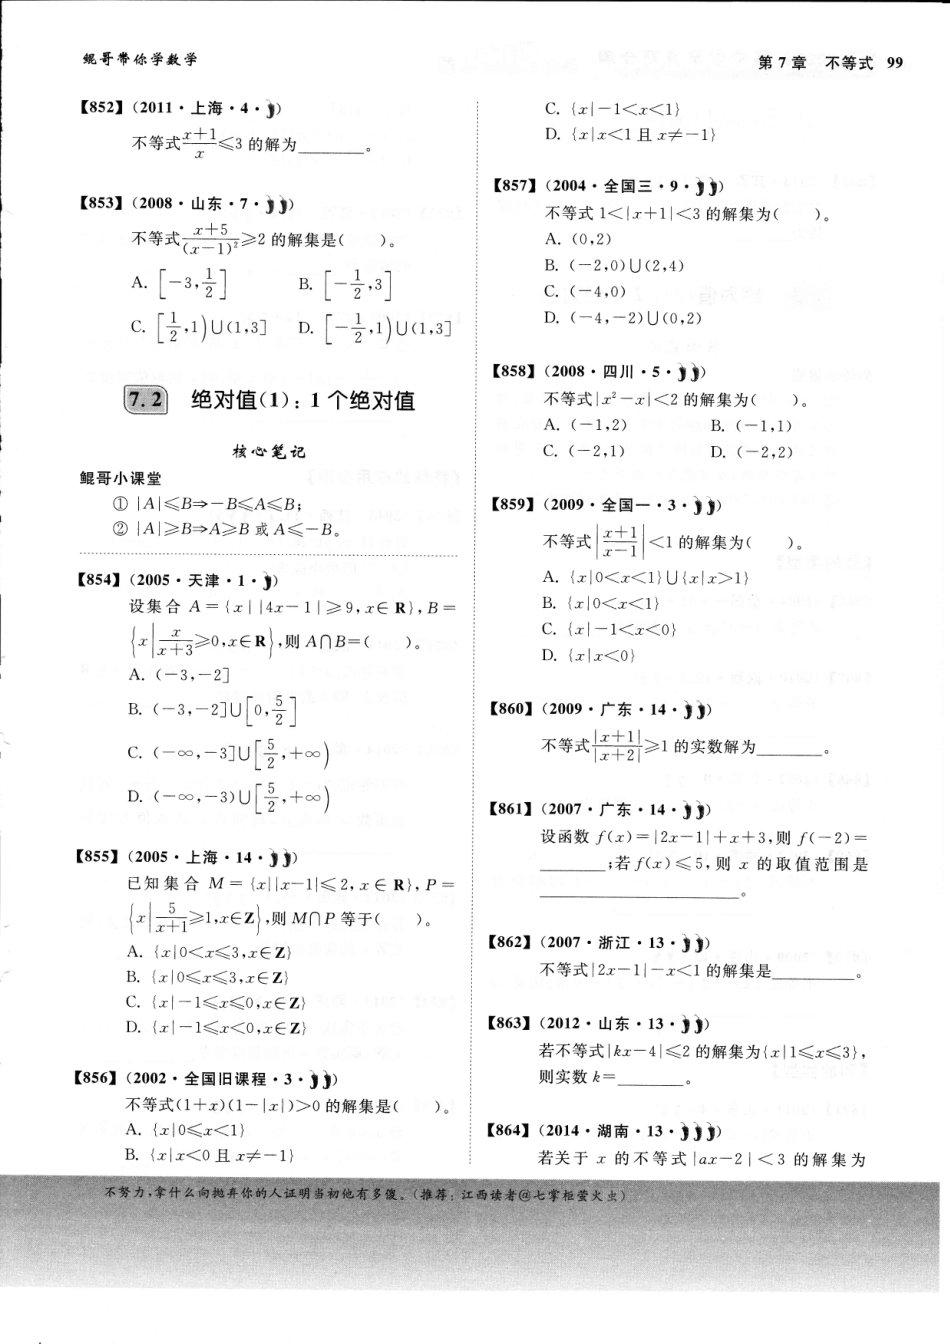 鲲哥带你学数学
第7章 不等式 99
【852】(2011·上海·4·)
不等式\frac{x+1}{x}≤3的解为______。
【853】(2008·山东·7·)
不等式\frac{x+5}{(x-1)^2}≥2的解集是( )。
A. [-3,\frac{1}{2}] B. [-\frac{1}{2},3]
C. [\frac{1}{2},1)∪(1,3] D. [-\frac{1}{2},1)∪(1,3]
7.2 绝对值(1)：1个绝对值
核心笔记
鲲哥小课堂
① |A|≤B⇒-B≤A≤B;
② |A|≥B⇒A≥B或A≤-B。
【854】(2005·天津·1·)
设集合 A={x||4x-1|≥9,x∈R},B=
{x|\frac{x}{x+3}≥0,x∈R},则A∩B=( )。
A. (-3,-2]
B. (-3,-2]∪[0,\frac{5}{2}]
C. (-∞,-3]∪[\frac{5}{2},+∞)
D. (-∞,-3)∪[\frac{5}{2},+∞)
【855】(2005·上海·14·)
已知集合 M={x||x-1|≤2,x∈R},P=
{x|\frac{5}{x+1}≥1,x∈Z},则M∩P等于( )。
A. {x|0<x≤3,x∈Z}
B. {x|0≤x≤3,x∈Z}
C. {x|-1≤x≤0,x∈Z}
D. {x|-1≤x<0,x∈Z}
【856】(2002·全国旧课程·3·)
不等式(1+x)(1-|x|)>0的解集是( )。
A. {x|0≤x<1}
B. {x|x<0且x≠-1}
C. {x|-1<x<1}
D. {x|x<1且x≠-1}
【857】(2004·全国三·9·)
不等式1<|x+1|<3的解集为( )。
A. (0,2)
B. (-2,0)∪(2,4)
C. (-4,0)
D. (-4,-2)∪(0,2)
【858】(2008·四川·5·)
不等式|x²-x|<2的解集为( )。
A. (-1,2) B. (-1,1)
C. (-2,1) D. (-2,2)
【859】(2009·全国一·3·)
不等式|\frac{x+1}{x-1}|<1的解集为( )。
A. {x|0<x<1}∪{x|x>1}
B. {x|0<x<1}
C. {x|-1<x<0}
D. {x|x<0}
【860】(2009·广东·14·)
不等式\frac{|x+1|}{|x+2|}≥1的实数解为______。
【861】(2007·广东·14·)
设函数f(x)=|2x-1|+x+3,则f(-2)=
______;若f(x)≤5,则x的取值范围是
______。
【862】(2007·浙江·13·)
不等式|2x-1|-x<1的解集是______。
【863】(2012·山东·13·)
若不等式|kx-4|≤2的解集为{x|1≤x≤3},
则实数k=______。
【864】(2014·湖南·13·)
若关于x的不等式|ax-2|<3的解集为
不努力,拿什么向抛弃你的人证明当初他有多傻。(推荐：江西读者@七掌柜萤火虫)